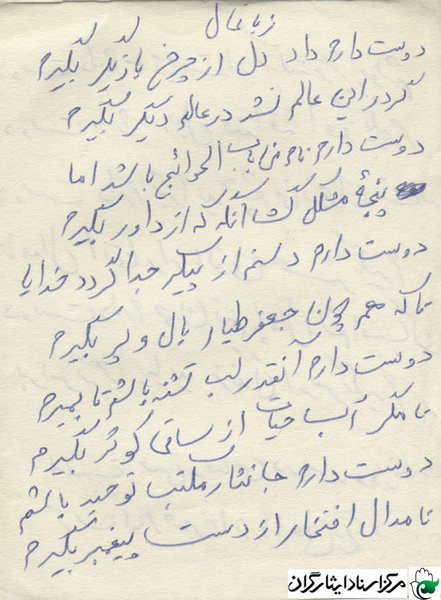 زبانحال
دوست دارم داد دل از چرخ بازیگر بگیرم
گر در این عالم نشد در عالم دیگر بگیرم
دوست دارم نام من باب الحوائج باشد اما
پنجهٔ مشکل گشا آنگه که از داور بگیرم
دوست دارم دستم از پیکر جدا گردد خدایا
تا که هم چون جعفر طیار بال و پر بگیرم
دوست دارم آنقدر لب تشنه باشم تا بمیرم
تا مگر آب حیات از ساقی کوثر بگیرم
دوست دارم جانثار مکتب توحید باشم
تا مدال افتخار از دست پیغمبر بگیرم
مرکز اسناد ایثارگران